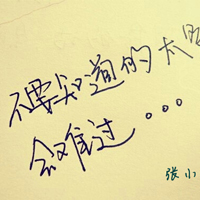 不要知道的太
会难过...
张小